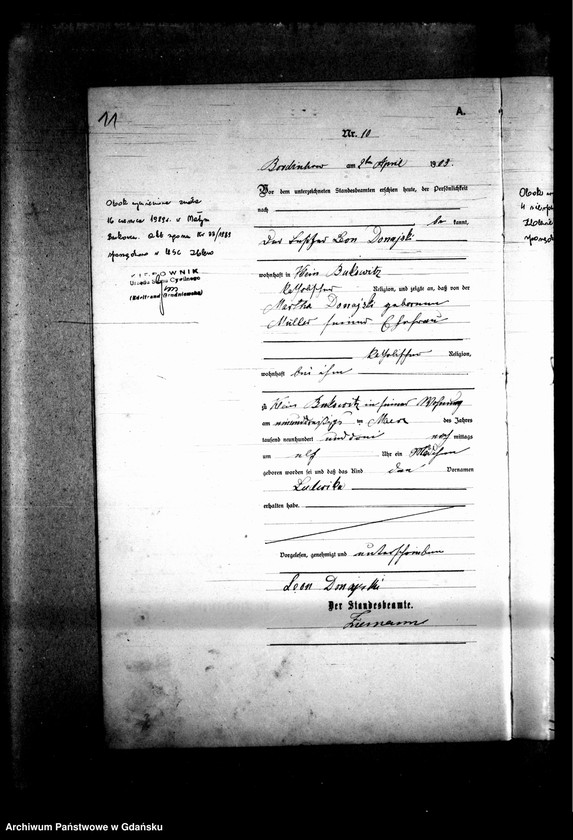 11
A.
Nr. 10
am 2ten April 1903.
Vor dem unterzeichneten Standesbeamten erschien heute, der Persönlichkeit
nach
be kannt,
Der Leon Donajski
wohnhaft in Klein Bukowitz
katholischer Religion, und zeigte an, daß von der
Martha Donajski geborenen
Müller seiner Ehefrau
katholischer Religion,
wohnhaft bei ihm
zu Klein Bukowitz in seiner Wohnung
am März des Jahres
tausend neunhundert und drei nach mittags
um elf Uhr ein Mädchen
geboren worden sei und daß das Kind den Vornamen
Ludwika
erhalten habe.
Vorgelesen, genehmigt und unterschrieben
Leon Donajski
Der Standesbeamte.
Ziemann
Obok wymieniona zmarła
16 czerwca 1989r. w Małym
Bukowcu. Akt zgonu Nr 33/1989
sporządzono w USC Zblewo
KIEROWNIK
Urzędu Stanu Cywilnego
Obok
Archiwum Państwowe w Gdańsku